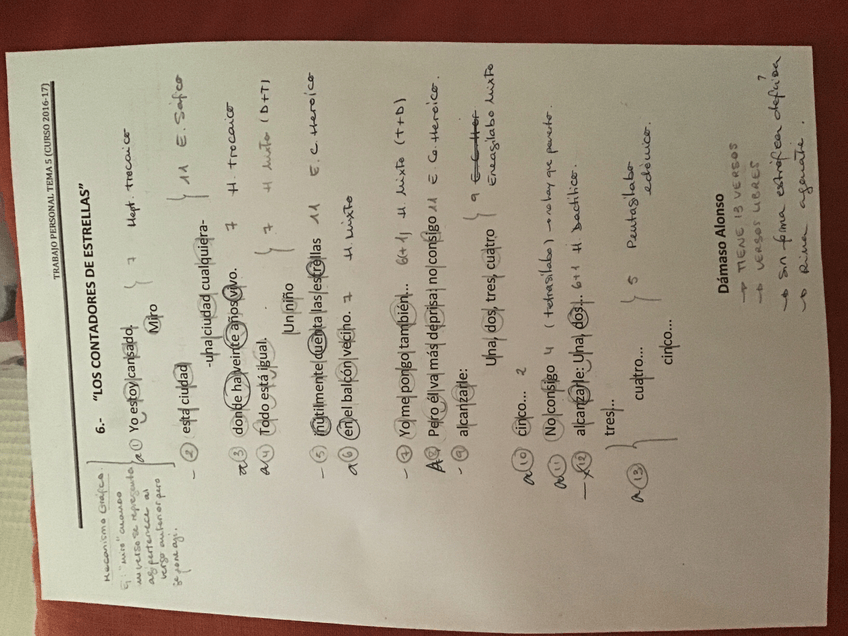 TRABAJO PERSONAL TEMA 5 (CURSO 2016-17)
6.- "LOS CONTADORES DE ESTRELLAS"
Mecanismo Gráfico.
"miro" cuando
un verso se representa
así pertenece al
verso anterior pero
se pone aquí.
a 1 Yo estoy cansado. } 7 Hept. trocaico
Miro
- 2 esta ciudad } 11 E. Sáfico
-una ciudad cualquiera-
a 3 donde ha veinte años vivo. 7 H. trocaico
a 4 Todo está igual. } 7 H Mixto (D+T)
Un niño
- 5 inútilmente cuenta las estrellas 11 E. C Heroico
a 6 en el balcón vecino. 7 H. Mixto
- 7 Yo me pongo también... 6(+1) H. Mixto (T+D)
A 8 Pero él va más deprisa: no consigo 11 E Co. Heroico.
- 9 alcanzarle: } 9 Eneasílabo Mixto
Una, dos, tres, cuatro
a 10 cinco... 2
a 11 No consigo 4 (tetrasílabo) → no hay que ponerlo.
- 12 alcanzarle: Una, dos... 6+1 H. Dactílico.
tres...
a 13 cuatro... } 5 Pentasílabo
cinco...
Dámaso Alonso
→ TIENE 13 VERSOS
→ VERSOS LIBRES ?
→ Sin forma estrófica definida
→ Rima asonante.